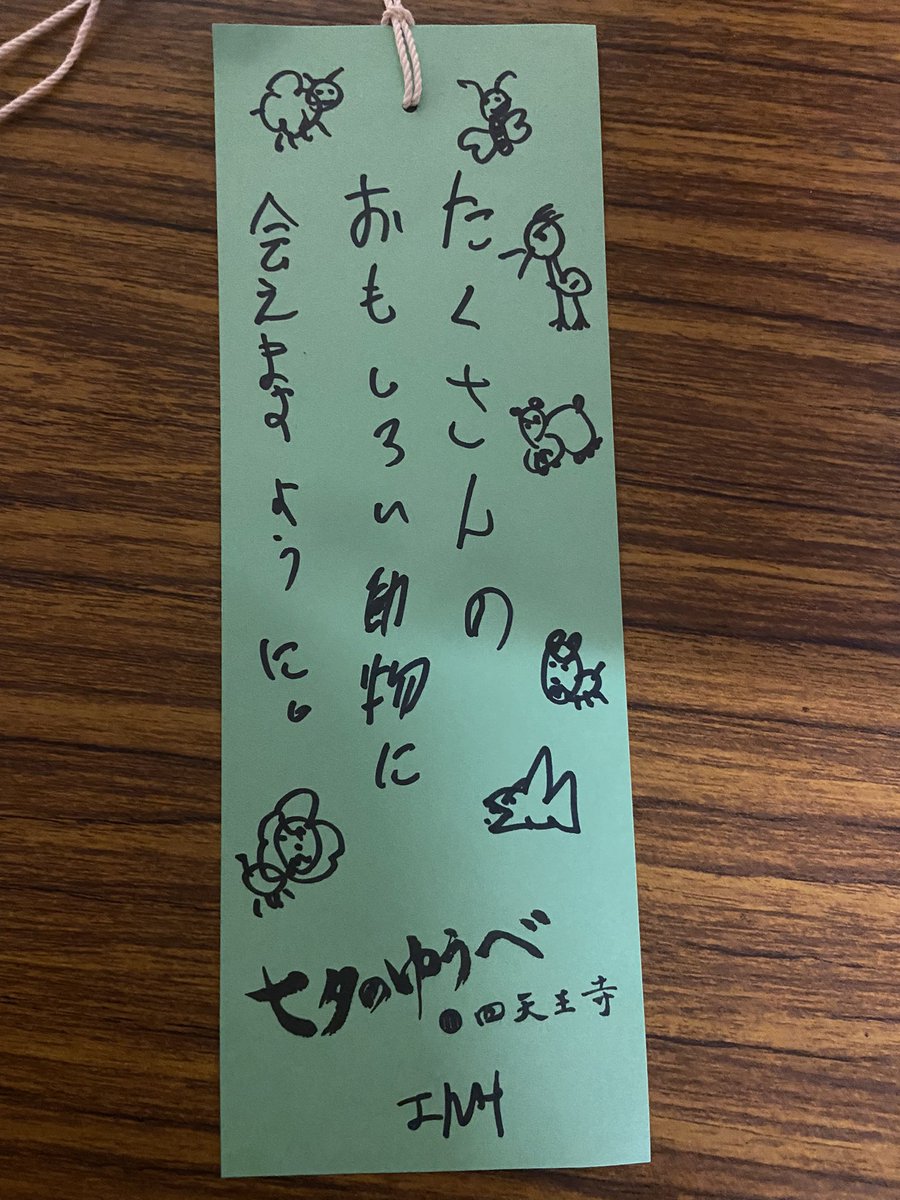 たくさんの
おもしろい動物に
会えますように。
七夕のゆうべ
四天王寺